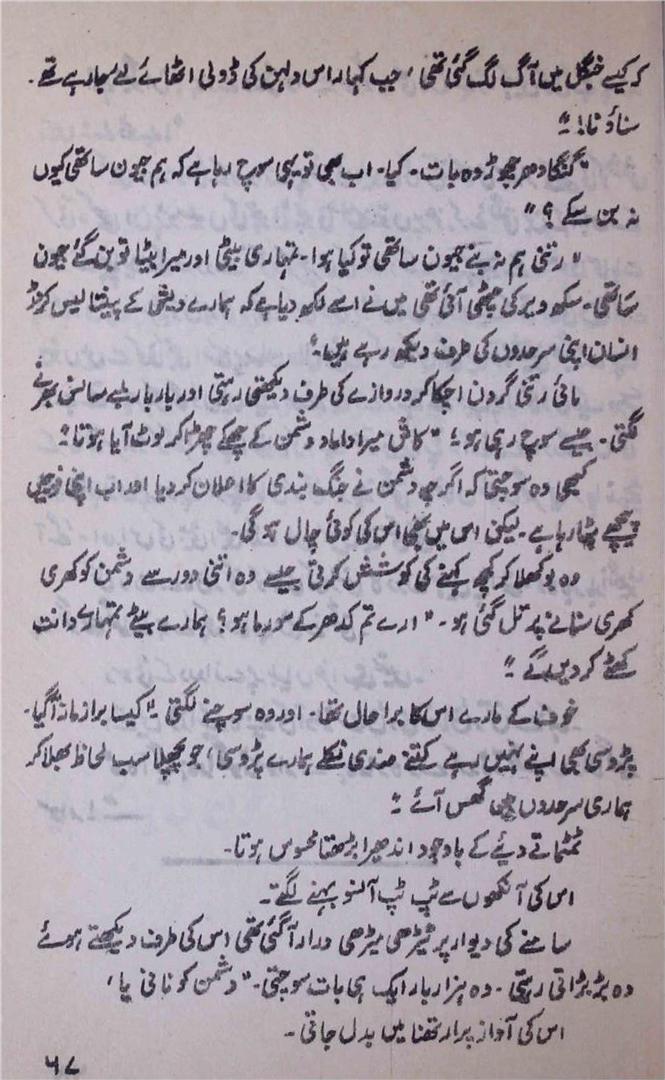 کہ کیسے جنگل میں آگ لگ گئی تھی، جب کہار اس دلہن کی ڈولی اٹھائے لیے جا رہے تھے۔
سناؤ نا!"
"گنگا دھر چھوڑ وہ بات۔ کیا۔ اب بھی تو یہی سوچ رہا ہے کہ ہم جیون ساتھی کیوں
نہ بن سکے؟"
"رتنی ہم نہ بنے جیون ساتھی تو کیا ہوا۔ تمہاری بیٹی اور میرا بیٹا تو بن گئے جیون
ساتھی۔ سکھ ویر کی چٹھی آئی تھی میں نے اسے لکھ دیا ہے کہ ہمارے دیش کے پینتالیس کروڑ
انسان اپنی سرحدوں کی طرف دیکھ رہے ہیں۔"
مائی رتنی گردن اچکا کر دروازے کی طرف دیکھتی رہتی اور بار بار لمبے سانس بھرنے
لگتی۔ جیسے سوچ رہی ہو، "کاش میرا داماد دشمن کے چھکے چھڑا کر لوٹ آیا ہوتا"
کبھی وہ سوچتی کہ اگرچہ دشمن نے جنگ بندی کا اعلان کر دیا اور اب اپنی فوجیں
پیچھے ہٹا رہا ہے۔ لیکن اس میں بھی اس کی کوئی چال ہو گی۔
وہ بوکھلا کر کچھ کہنے کی کوشش کرتی جیسے وہ اتنی دور سے دشمن کو کھری
کھری سنانے پر تل گئی ہو۔ "ارے تم کدھر کے سورما ہو؟ ہمارے بیٹے تمہارے دانت
کھٹے کر دیں گے"
خوف کے مارے اس کا برا حال تھا۔ اور وہ سوچنے لگتی "کیسا برا زمانہ آ گیا۔
پڑوسی بھی اپنے نہیں رہے کتنے ضدی نکلے ہمارے پڑوسی، جو پچھلا سب لحاظ بھلا کر
ہماری سرحدوں میں گھس آئے"
ٹمٹماتے دیئے کے باوجود اندھیرا بڑھتا محسوس ہوتا۔
اس کی آنکھوں سے ٹپ ٹپ آنسو بہنے لگتے۔
سامنے کی دیوار پر ٹیڑھی میڑھی دراڑ آ گئی تھی اس کی طرف دیکھتے ہوئے
وہ بڑبڑاتی رہتی۔ وہ ہزار بار ایک ہی بات سوچتی۔ "دشمن کو نانی یا،
اس کی آواز پرارتھنا میں بدل جاتی۔
۶۷